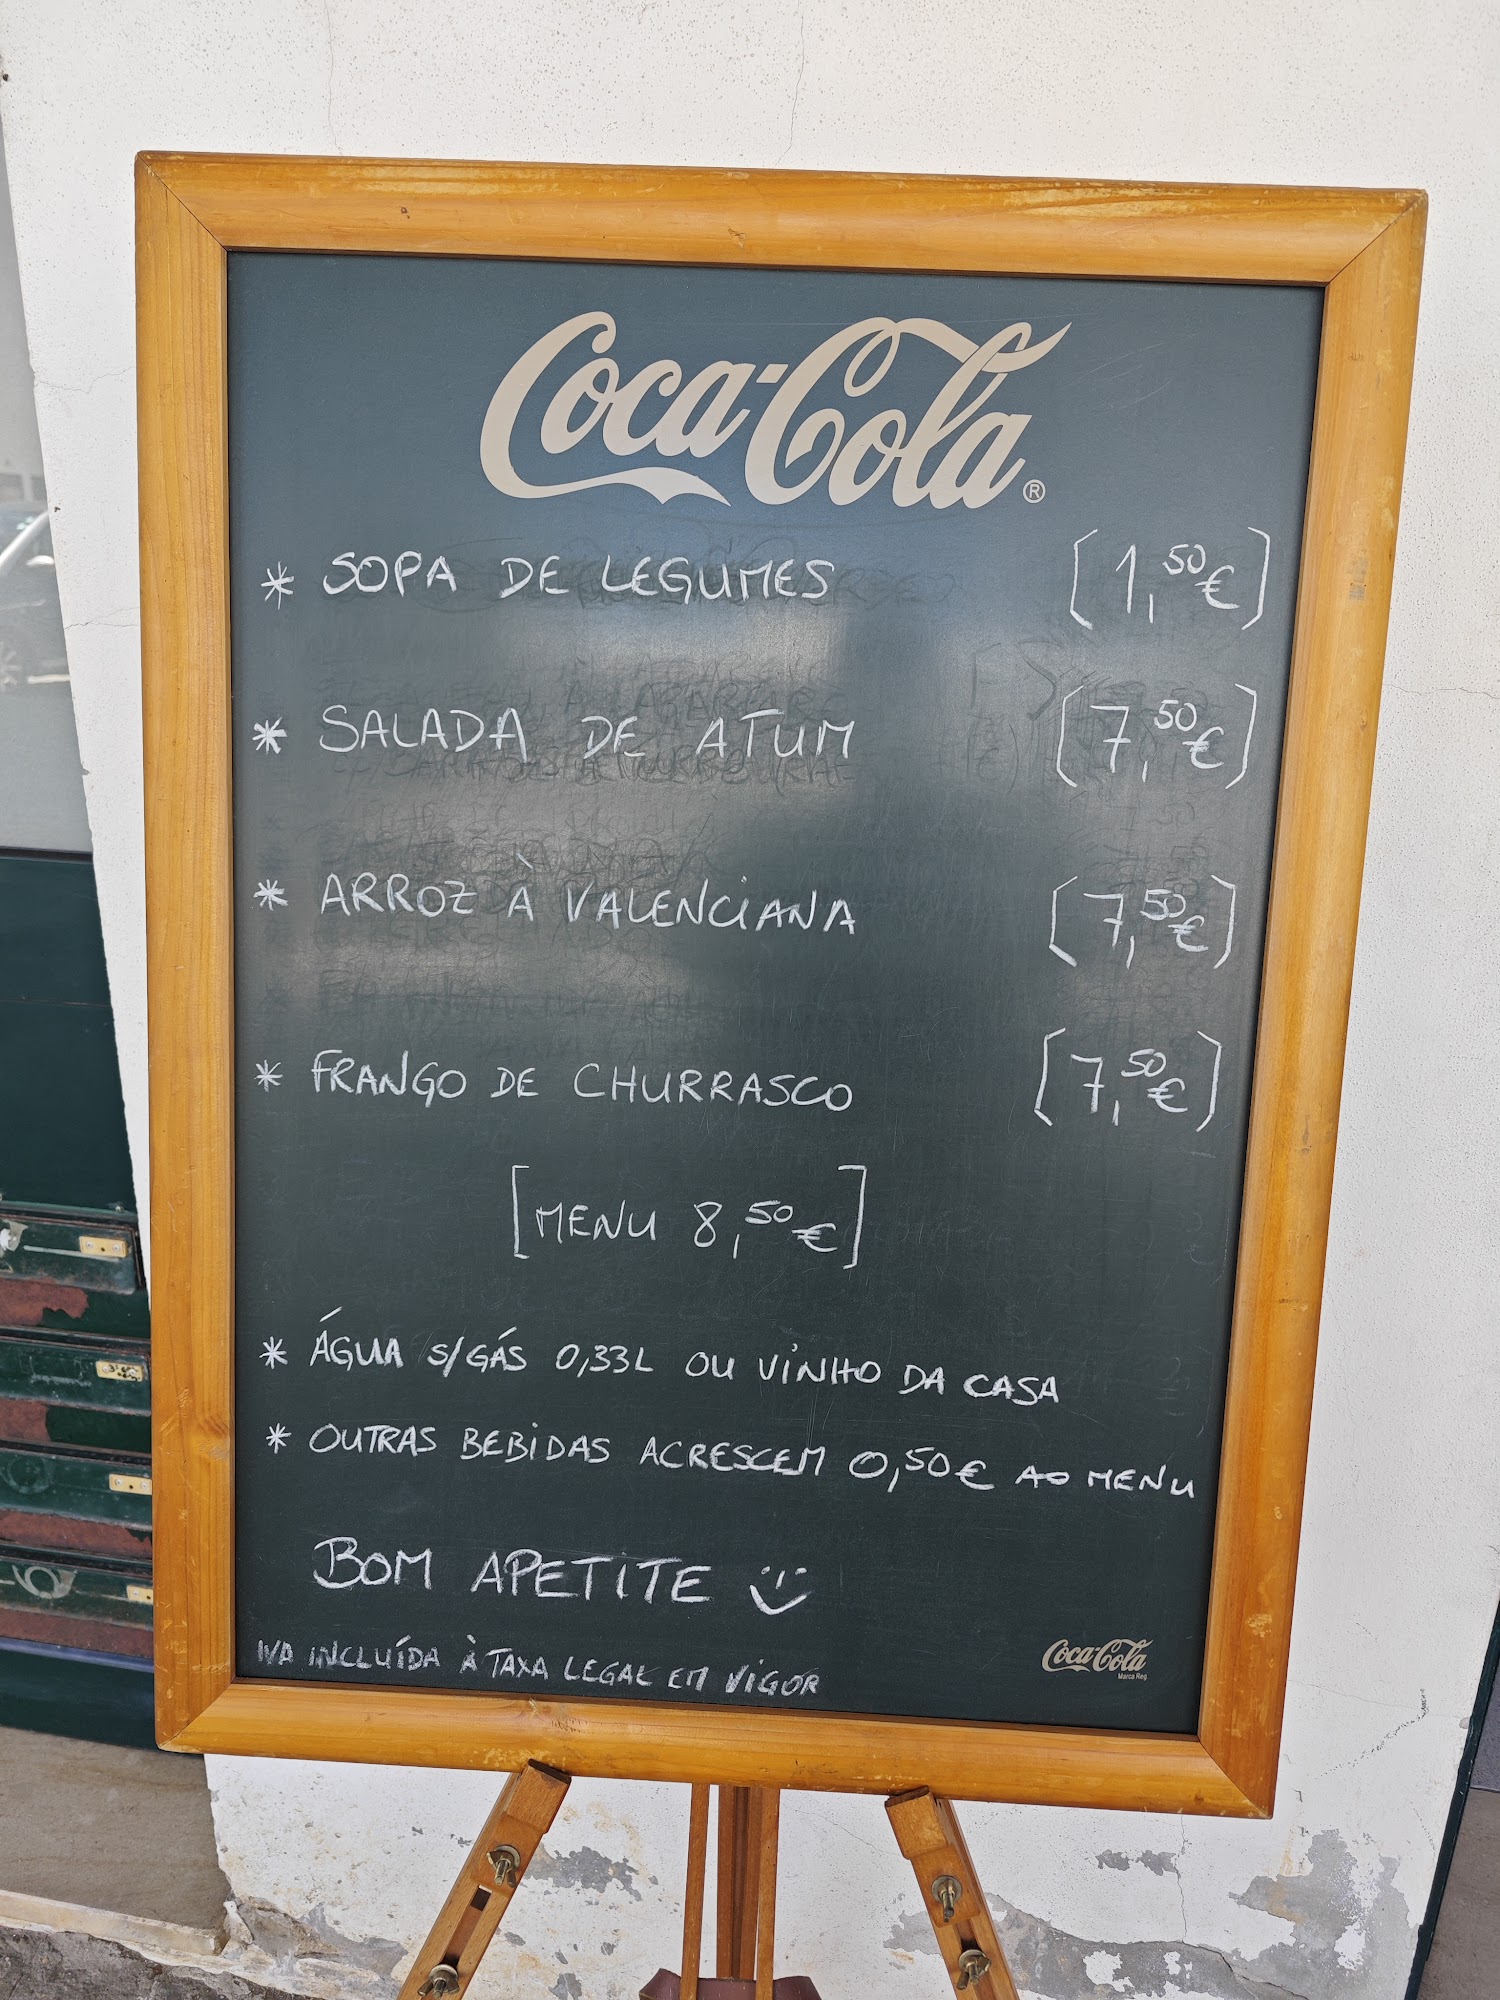 Coca-Cola®
* SOPA DE LEGUMES [1,50€]
* SALADA DE ATUM [7,50€]
* ARROZ À VALENCIANA [7,50€]
* FRANGO DE CHURRASCO [7,50€]
[MENU 8,50€]
* ÁGUA S/GÁS 0,33L OU VINHO DA CASA
* OUTRAS BEBIDAS ACRESCEM 0,50€ AO MENU
BOM APETITE
IVA INCLUÍDA À TAXA LEGAL EM VIGOR
Coca-Cola
Marca Reg